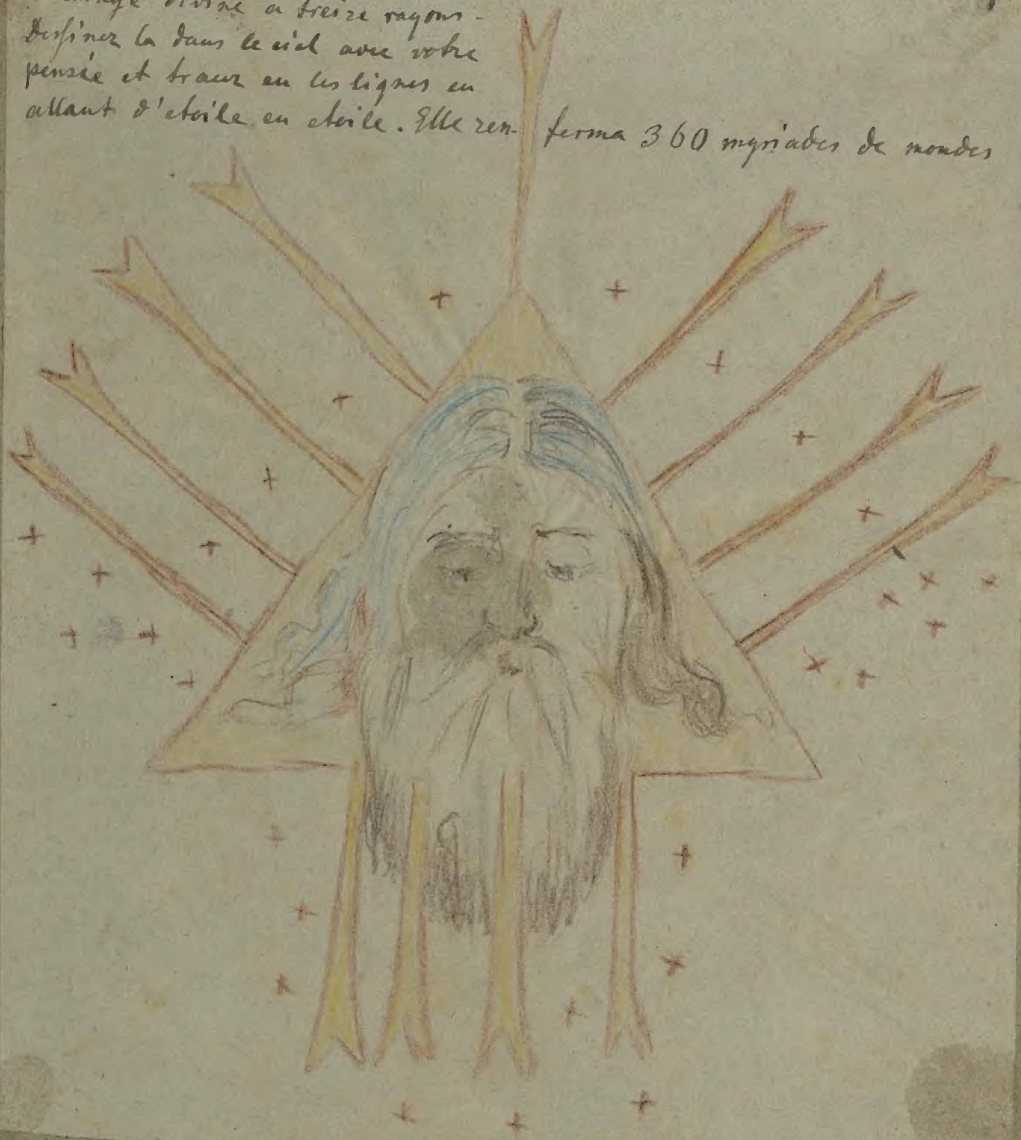 image divine a treize rayons -
Dessinez la dans le ciel avec votre
pensée et tracez en les lignes en
allant d'etoile en etoile. Elle ren-
ferma 360 myriades de mondes